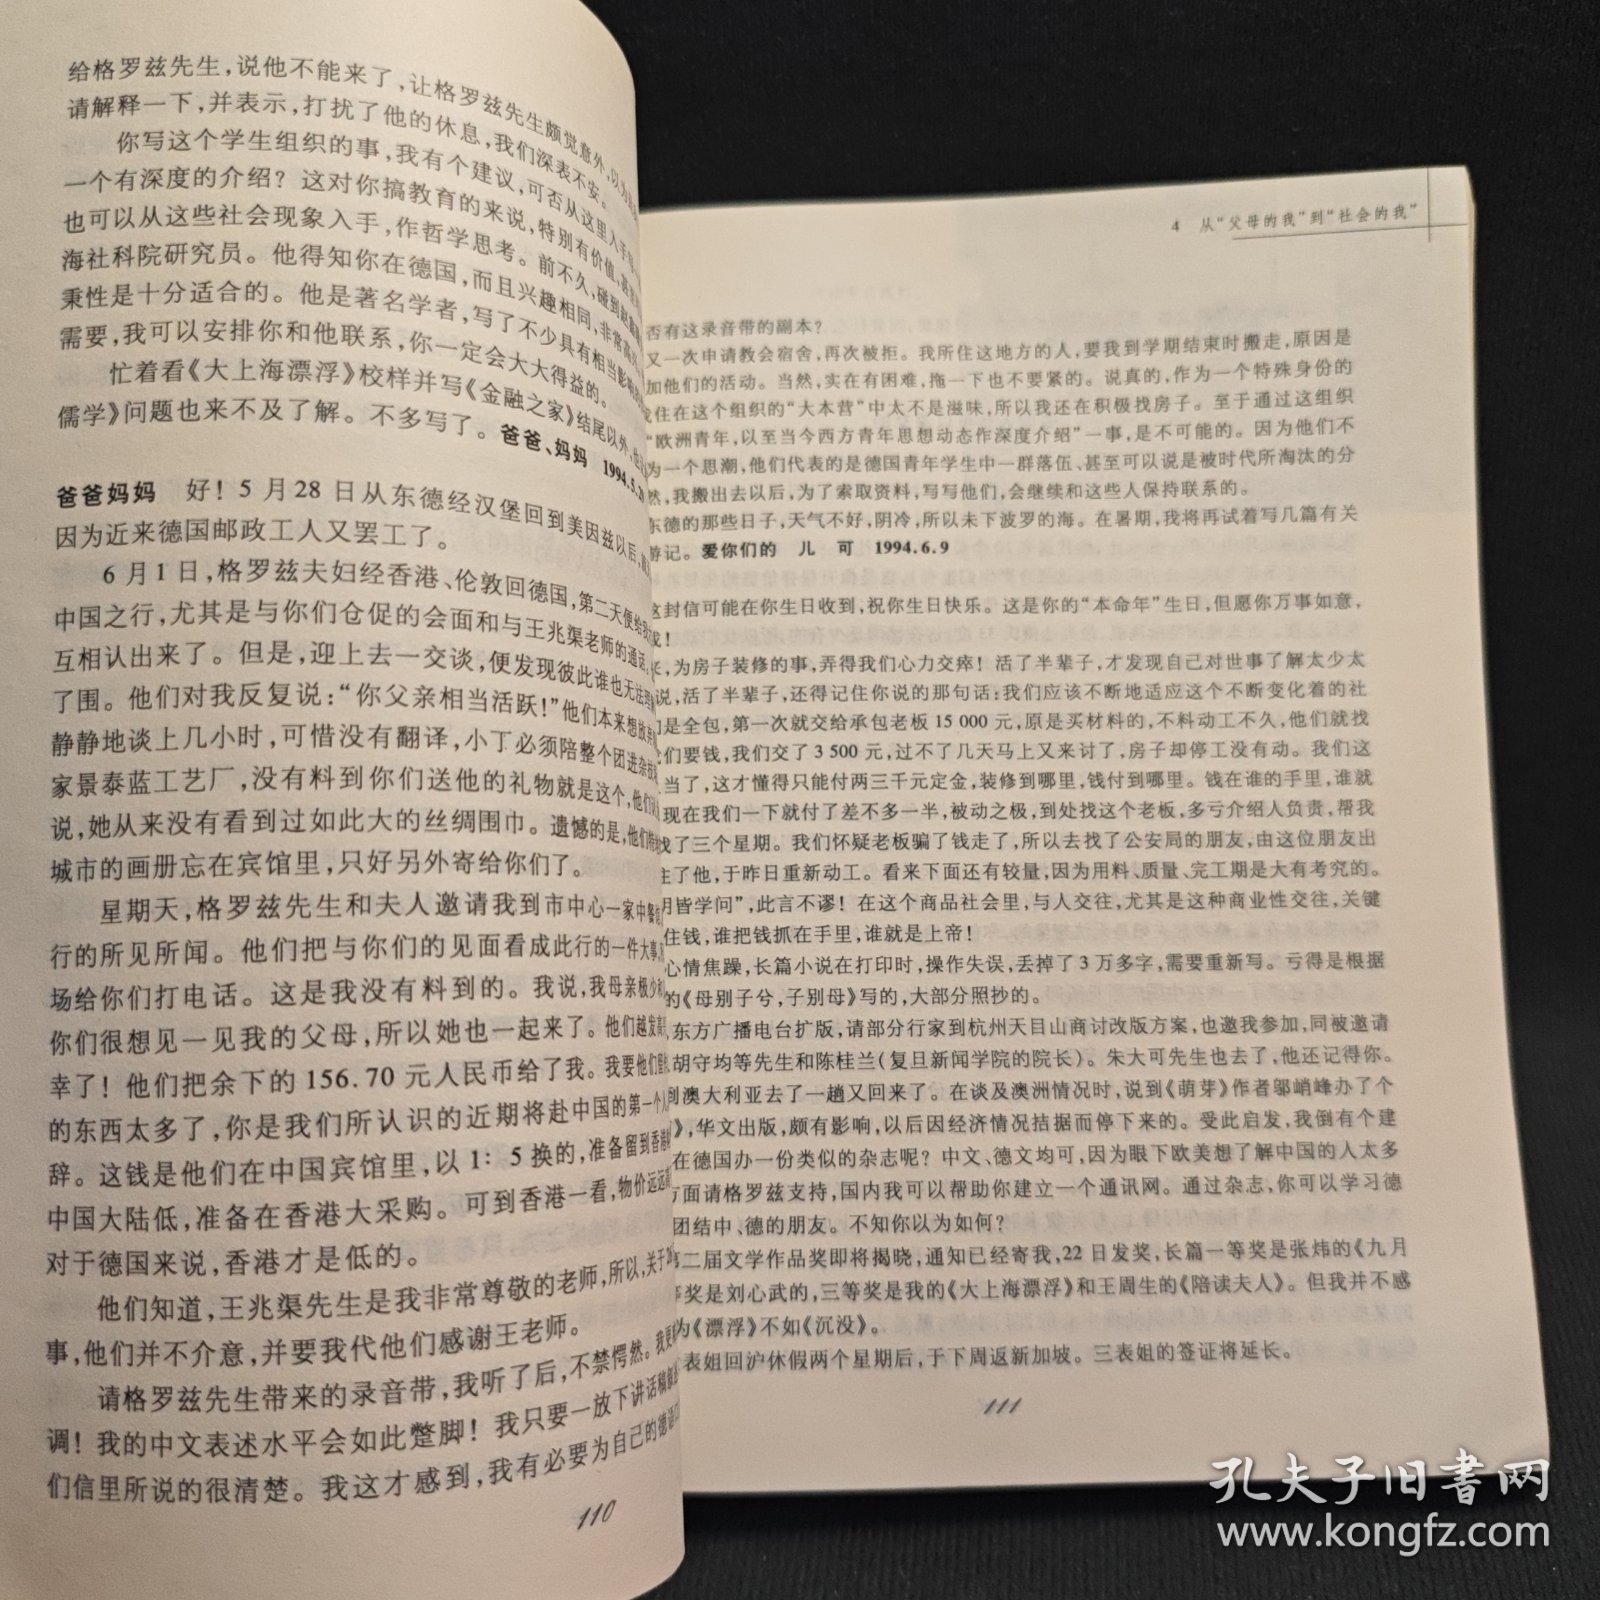 给格罗兹先生，说他不能来了，让格罗兹先生颇觉意外，以为
请解释一下，并表示，打扰了他的休息，我们深表不安。
你写这个学生组织的事，我有个建议，可否从这里入手
一个有深度的介绍？这对你搞教育的来说，特别有价值，甚至
也可以从这些社会现象入手，作哲学思考。前不久，碰到赵鑫
海社科院研究员。他得知你在德国，而且兴趣相同，非常高兴
秉性是十分适合的。他是著名学者，写了不少具有相当影响的
需要，我可以安排你和他联系，你一定会大大得益的。
忙着看《大上海漂浮》校样并写《金融之家》结尾以外，
儒学》问题也来不及了解。不多写了。爸爸、妈妈 1994.5.2
爸爸妈妈 好！5月28日从东德经汉堡回到美因兹以后，
因为近来德国邮政工人又罢工了。
6月1日，格罗兹夫妇经香港、伦敦回德国，第二天便给我
中国之行，尤其是与你们仓促的会面和与王兆渠老师的通话，
互相认出来了。但是，迎上去一交谈，便发现彼此谁也无法
了围。他们对我反复说：“你父亲相当活跃！”他们本来想放弃
静静地谈上几小时，可惜没有翻译，小丁必须陪整个团进杂技
家景泰蓝工艺厂，没有料到你们送他的礼物就是这个，他们
说，她从来没有看到过如此大的丝绸围巾。遗憾的是，他们
城市的画册忘在宾馆里，只好另外寄给你们了。
星期天，格罗兹先生和夫人邀请我到市中心一家中餐
行的所见所闻。他们把与你们的见面看成此行的一件大事，
场给你们打电话。这是我没有料到的。我说，我母亲极少
你们很想见一见我的父母，所以她也一起来了。他们越发高
幸了！他们把余下的156.70元人民币给了我。我要他们留
的东西太多了，你是我们所认识的近期将赴中国的第一个人
辞。这钱是他们在中国宾馆里，以1：5换的，准备留到香港
中国大陆低，准备在香港大采购。可到香港一看，物价远远
对于德国来说，香港才是低的。
他们知道，王兆渠先生是我非常尊敬的老师，所以，关于
事，他们并不介意，并要我代他们感谢王老师。
请格罗兹先生带来的录音带，我听了后，不禁愕然。我
调！我的中文表述水平会如此蹩脚！我只要一放下讲话稿
们信里所说的很清楚。我这才感到，我有必要为自己的德语
110
4 从“父母的我”到“社会的我”
否有这录音带的副本？
又一次申请教会宿舍，再次被拒。我所住这地方的人，要我到学期结束时搬走，原因是
加他们的活动。当然，实在有困难，拖一下也不要紧的。说真的，作为一个特殊身份的
住在这个组织的“大本营”中太不是滋味，所以我还在积极找房子。至于通过这组织
“欧洲青年，以至当今西方青年思想动态作深度介绍”一事，是不可能的。因为他们不
为一个思潮，他们代表的是德国青年学生中一群落伍、甚至可以说是被时代所淘汰的分
然，我搬出去以后，为了索取资料，写写他们，会继续和这些人保持联系的。
东德的那些日子，天气不好，阴冷，所以未下波罗的海。在暑期，我将再试着写几篇有关
游记。爱你们的 儿 可 1994.6.9
这封信可能在你生日收到，祝你生日快乐。这是你的“本命年”生日，但愿你万事如意，
成！
来，为房子装修的事，弄得我们心力交瘁！活了半辈子，才发现自己对世事了解太少太
说，活了半辈子，还得记住你说的那句话：我们应该不断地适应这个不断变化着的社
们是全包，第一次就交给承包老板15 000元，原是买材料的，不料动工不久，他们就找
们要钱，我们交了3 500元，过不了几天马上又来讨了，房子却停工没有动。我们这
当了，这才懂得只能付两三千元定金，装修到哪里，钱付到哪里。钱在谁的手里，谁就
现在我们一下就付了差不多一半，被动之极，到处找这个老板，多亏介绍人负责，帮我
找了三个星期。我们怀疑老板骗了钱走了，所以去找了公安局的朋友，由这位朋友出
住了他，于昨日重新动工。看来下面还有较量，因为用料、质量、完工期是大有考究的。
明皆学问”，此言不谬！在这个商品社会里，与人交往，尤其是这种商业性交往，关键
住钱，谁把钱抓在手里，谁就是上帝！
心情焦躁，长篇小说在打印时，操作失误，丢掉了3万多字，需要重新写。亏得是根据
的《母别子兮，子别母》写的，大部分照抄的。
东方广播电台扩版，请部分行家到杭州天目山商讨改版方案，也邀我参加，同被邀请
胡守均等先生和陈桂兰（复旦新闻学院的院长）。朱大可先生也去了，他还记得你。
到澳大利亚去了一趟又回来了。在谈及澳洲情况时，说到《萌芽》作者邬峭峰办了个
》，华文出版，颇有影响，以后因经济情况拮据而停下来的。受此启发，我倒有个建
在德国办一份类似的杂志呢？中文、德文均可，因为眼下欧美想了解中国的人太多
方面请格罗兹支持，国内我可以帮助你建立一个通讯网。通过杂志，你可以学习德
团结中、德的朋友。不知你以为如何？
第二届文学作品奖即将揭晓，通知已经寄我，22日发奖，长篇一等奖是张炜的《九月
等奖是刘心武的，三等奖是我的《大上海漂浮》和王周生的《陪读夫人》。但我并不感
为《漂浮》不如《沉没》。
表姐回沪休假两个星期后，于下周返新加坡。三表姐的签证将延长。
111
孔夫子旧书网
www.kongfz.com